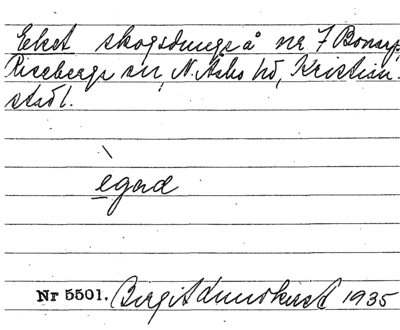 Eket skogsdunge å nr 7 Bonarp,
Riseberga sn, N. Åsbo hd, Kristian-
stads l.
egard
Nr 5501. Birgit Lundkvist 1935